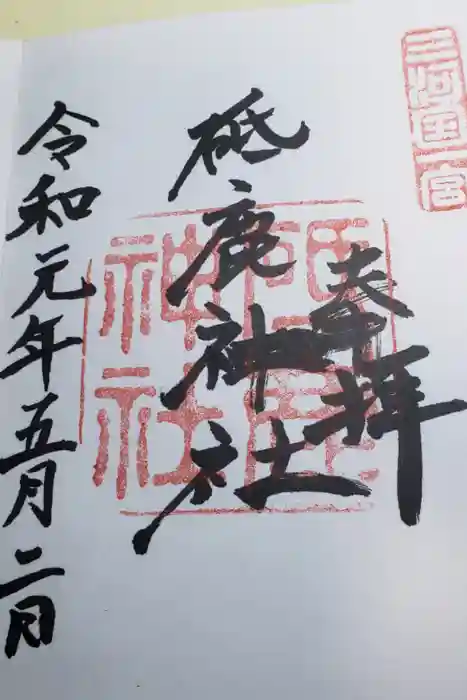 三河國一宮
奉拝
砥鹿神社
砥鹿
神社
令和元年五月二日